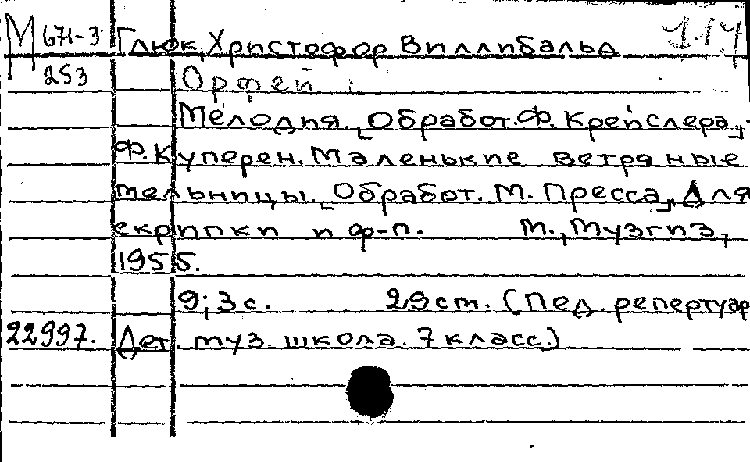 М 671-3 Глюк, Христофор Виллибальд 1.14
253 Орфей :
Мелодия. [Обработ. Ф. Крейслера].
Ф. Куперен. Маленькие ветряные
мельницы. [Обработ. М. Пресса]. Для
скрипки и ф-п. М., Музгиз,
1955.
9; 3 с. 29 cm. (Пед. репертуар
22997. Дет. муз. школа. 7 класс.)